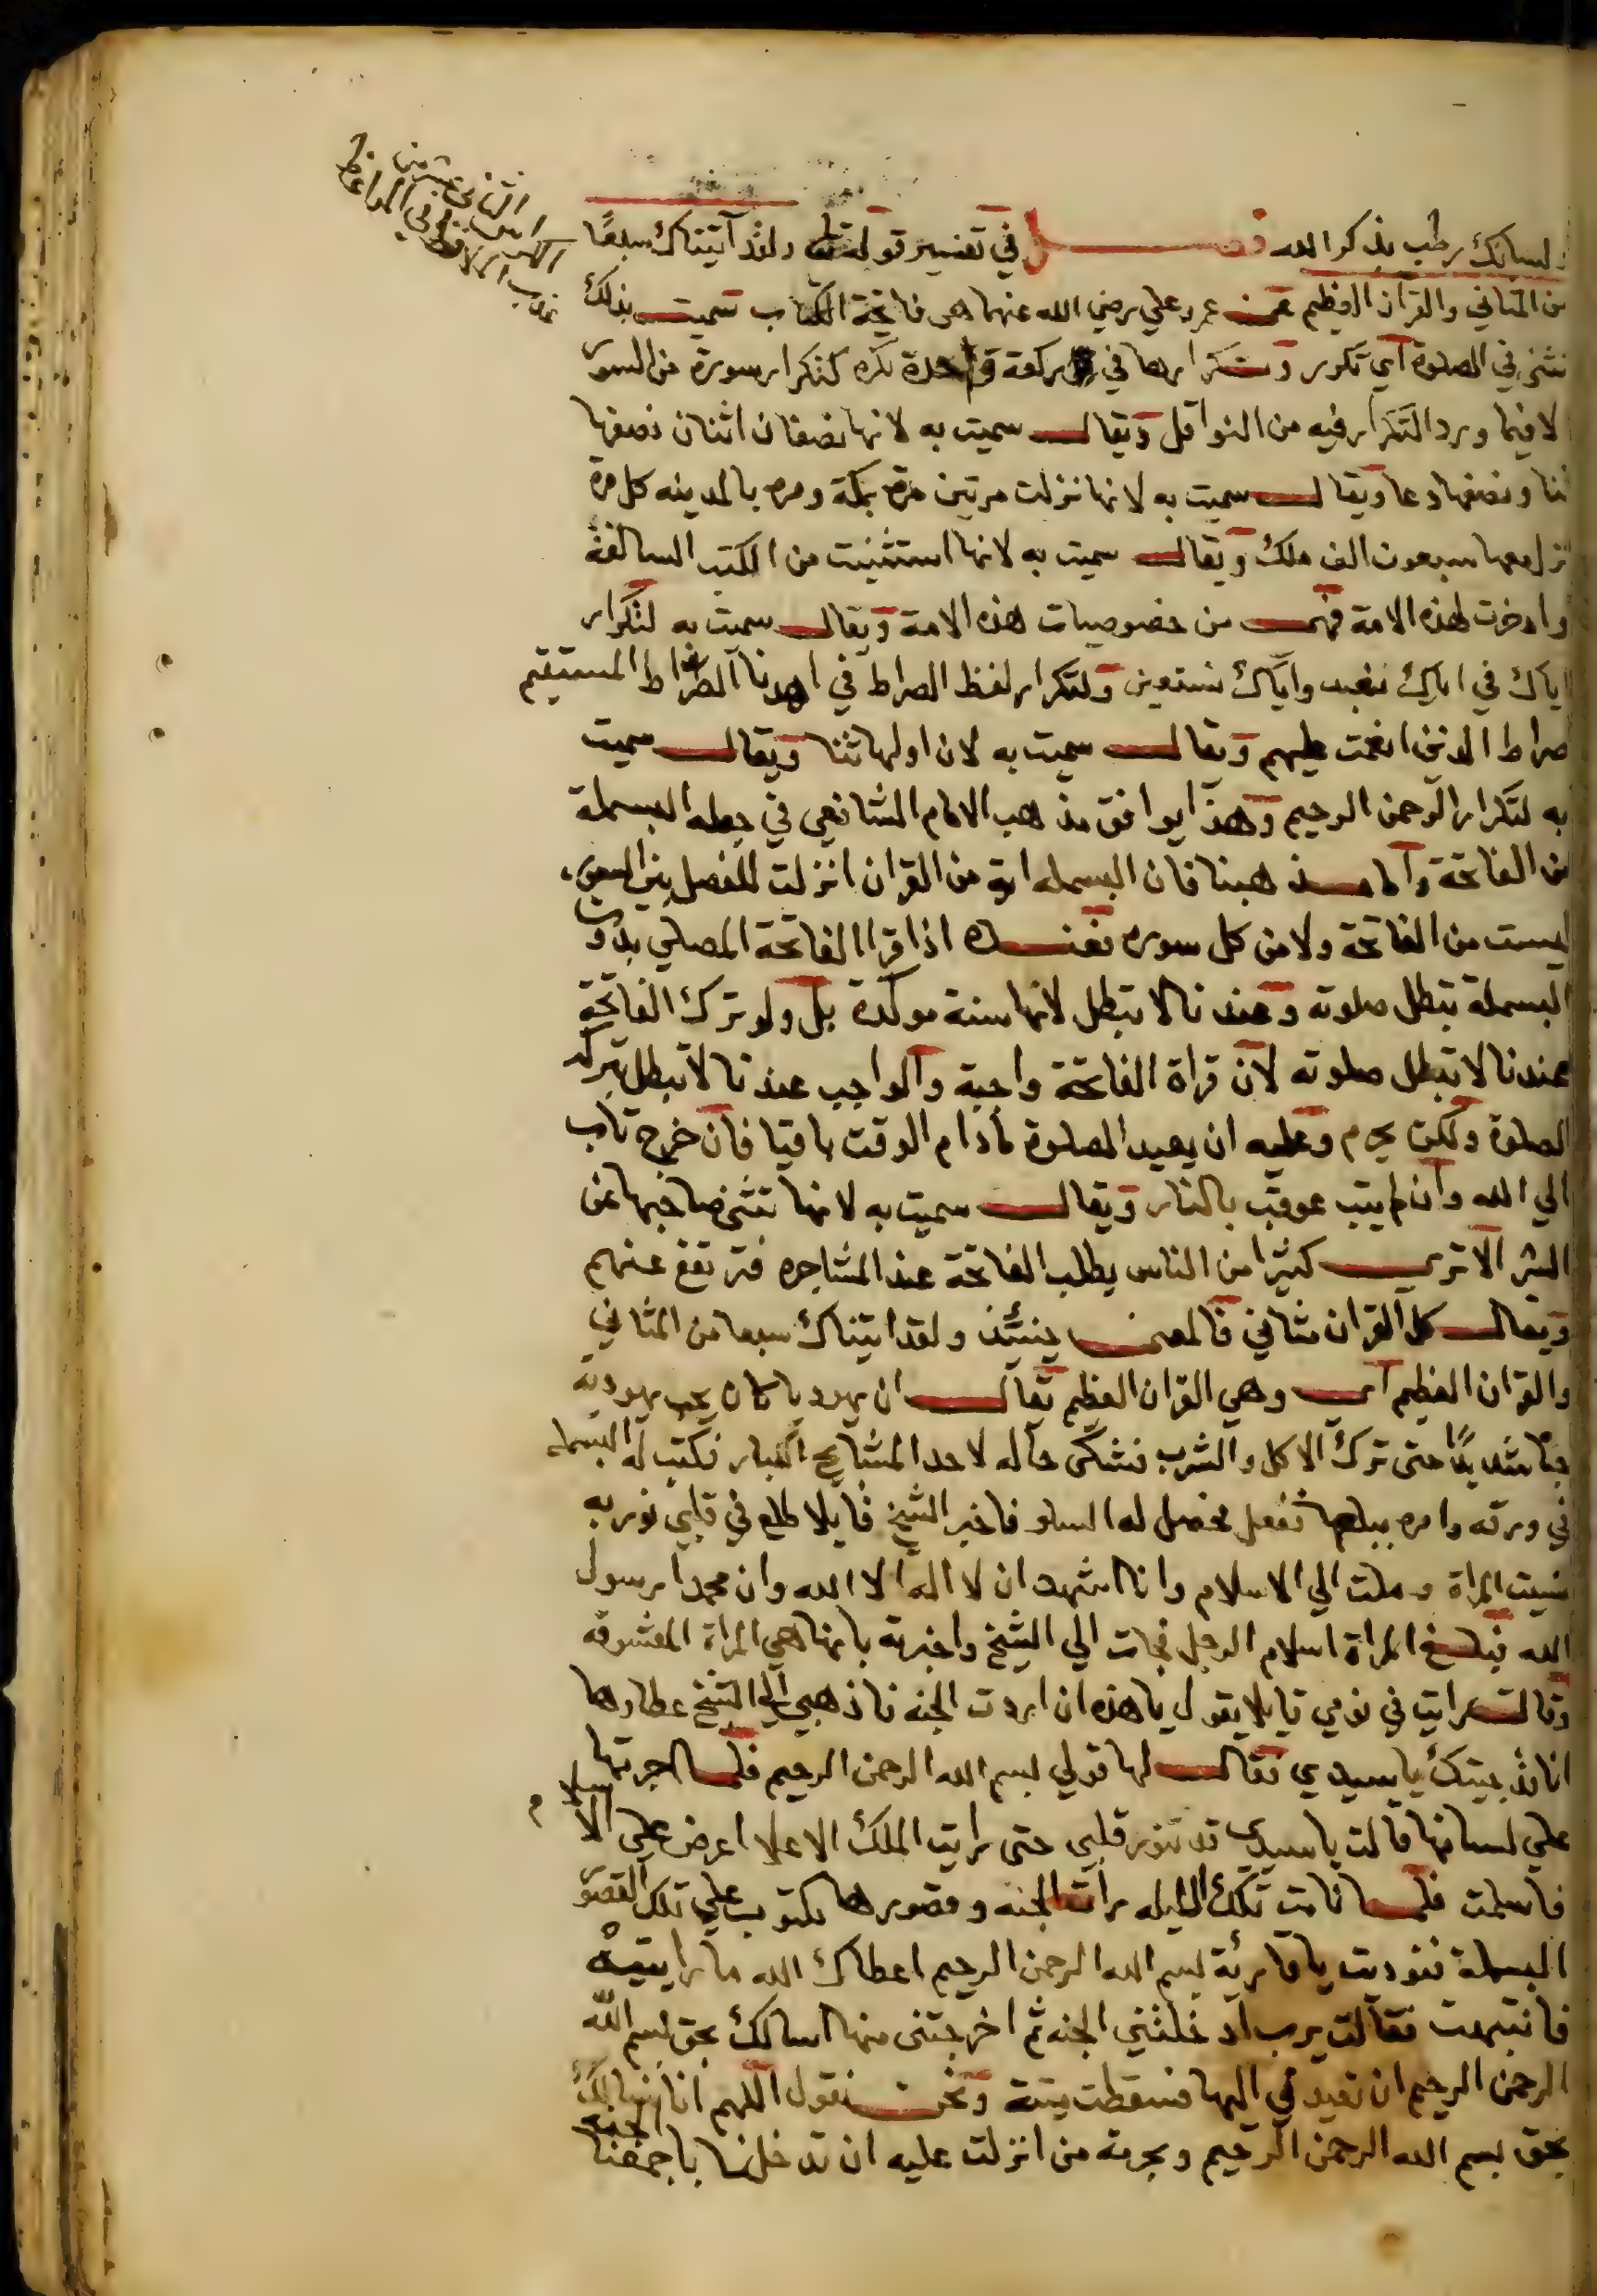 ولسانك رطب بذكر الله فصل في تفسير قوله تعالى ولقد آتيناك سبعًا
من المثاني والقران العظيم عن عمر وعلي رضي الله عنهما هي فاتحة الكتاب سميت بذلك
تثنى في الصلوة اي تكرر وتكرارها في ركعة واحدة تكره كتكرار سورة من السور
لا فيما ورد التكرار فيه من النوافل ويقال سميت به لانها نصفان اثنان نصفها
ثنا ونصفها دعا ويقال سميت به لانها نزلت مرتين مرة بمكة ومره بالمدينه كل مرة
نزل معها سبعون الف ملك ويقال سميت به لانها استثنيت من الكتب السالفة
وادخرت لهذه الامة فهي من خصوصيات هذه الامة ويقال سميت به لتكرار
اياك في اياك نعبد واياك نستعين ولتكرار لفظ الصراط في اهدنا الصراط المستقيم
صراط الذين انعمت عليهم ويقال سميت به لان اولها ثنا ويقال سميت
به لتكرار الرحمن الرحيم وهذا يوافق مذهب الامام الشافعي في جعله البسملة
من الفاتحة واما مذهبنا فان البسمله اية من القران انزلت للفصل بين السور
ليست من الفاتحة ولا من كل سوره فعنده اذا قرا الفاتحة المصلي بدون
البسملة تبطل صلوته وعندنا لا تبطل لانها سنة موكدة بل ولو ترك الفاتحة
عندنا لا تبطل صلوته لان قراة الفاتحة واجبة والواجب عندنا لا تبطل بتركه
الصلوة ولكن يحرم وعليه ان يعيد الصلوة مادام الوقت باقيا فان خرج تاب
الي الله وان لم يتب عوقب بالنار ويقال سميت به لانها تثني صاحبها عن
الشر الا تري كثيرا من الناس يطلب الفاتحة عند المشاجره فترتفع عنهم
ويقال كل القران مثاني فالمعنى حينئذ ولقد اتيناك سبعا من المثاني
والقران العظيم اي وهي القران العظيم يقال ان يهوديا كان يحب يهودية
حبا شديدًا حتى ترك الاكل والشرب فشكى حاله لاحد المشايخ الكبار فكتب له البسمله
في ورقه وامره ببلعها ففعل فحصل له السلو فاخبر الشيخ قايلا طلع في قلبي نور به
نسيت المراة وملت الي الاسلام وانا اشهد ان لا اله الا الله وان محمدا رسول
الله فبلغ المراة اسلام الرجل فجات الي الشيخ واخبرته بانها هي المراة المعشوقه
وقالت رايت في نومي قايلا يقول يا هذه ان اردت الجنه فاذهبي الي الشيخ عطا وها
انا قد جيتك يا سيدي فقال لها قولي بسم الله الرحمن الرحيم فلما اجرتها
علي لسانها قالت يا سيدي قد تنور قلبي حتى رايت الملك الاعلا اعرض علي الاسلام
فاسلمت فلما نامت تلك الليله رات الجنه وقصورها مكتوب علي تلك القصور
البسملة فنوديت يا قارئة بسم الله الرحمن الرحيم اعطاك الله ما رايتيه
فانتبهت فقالت يرب ادخلتني الجنه ثم اخرجتني منها اسالك بحق بسم الله
الرحمن الرحيم ان تعيدني اليها فسقطت ميتة ونحن نقول اللهم انا نسالك
بحق بسم الله الرحمن الرحيم وبحرمة من انزلت عليه ان تدخلنا الجنة باجمعنا
الثاني عشر من